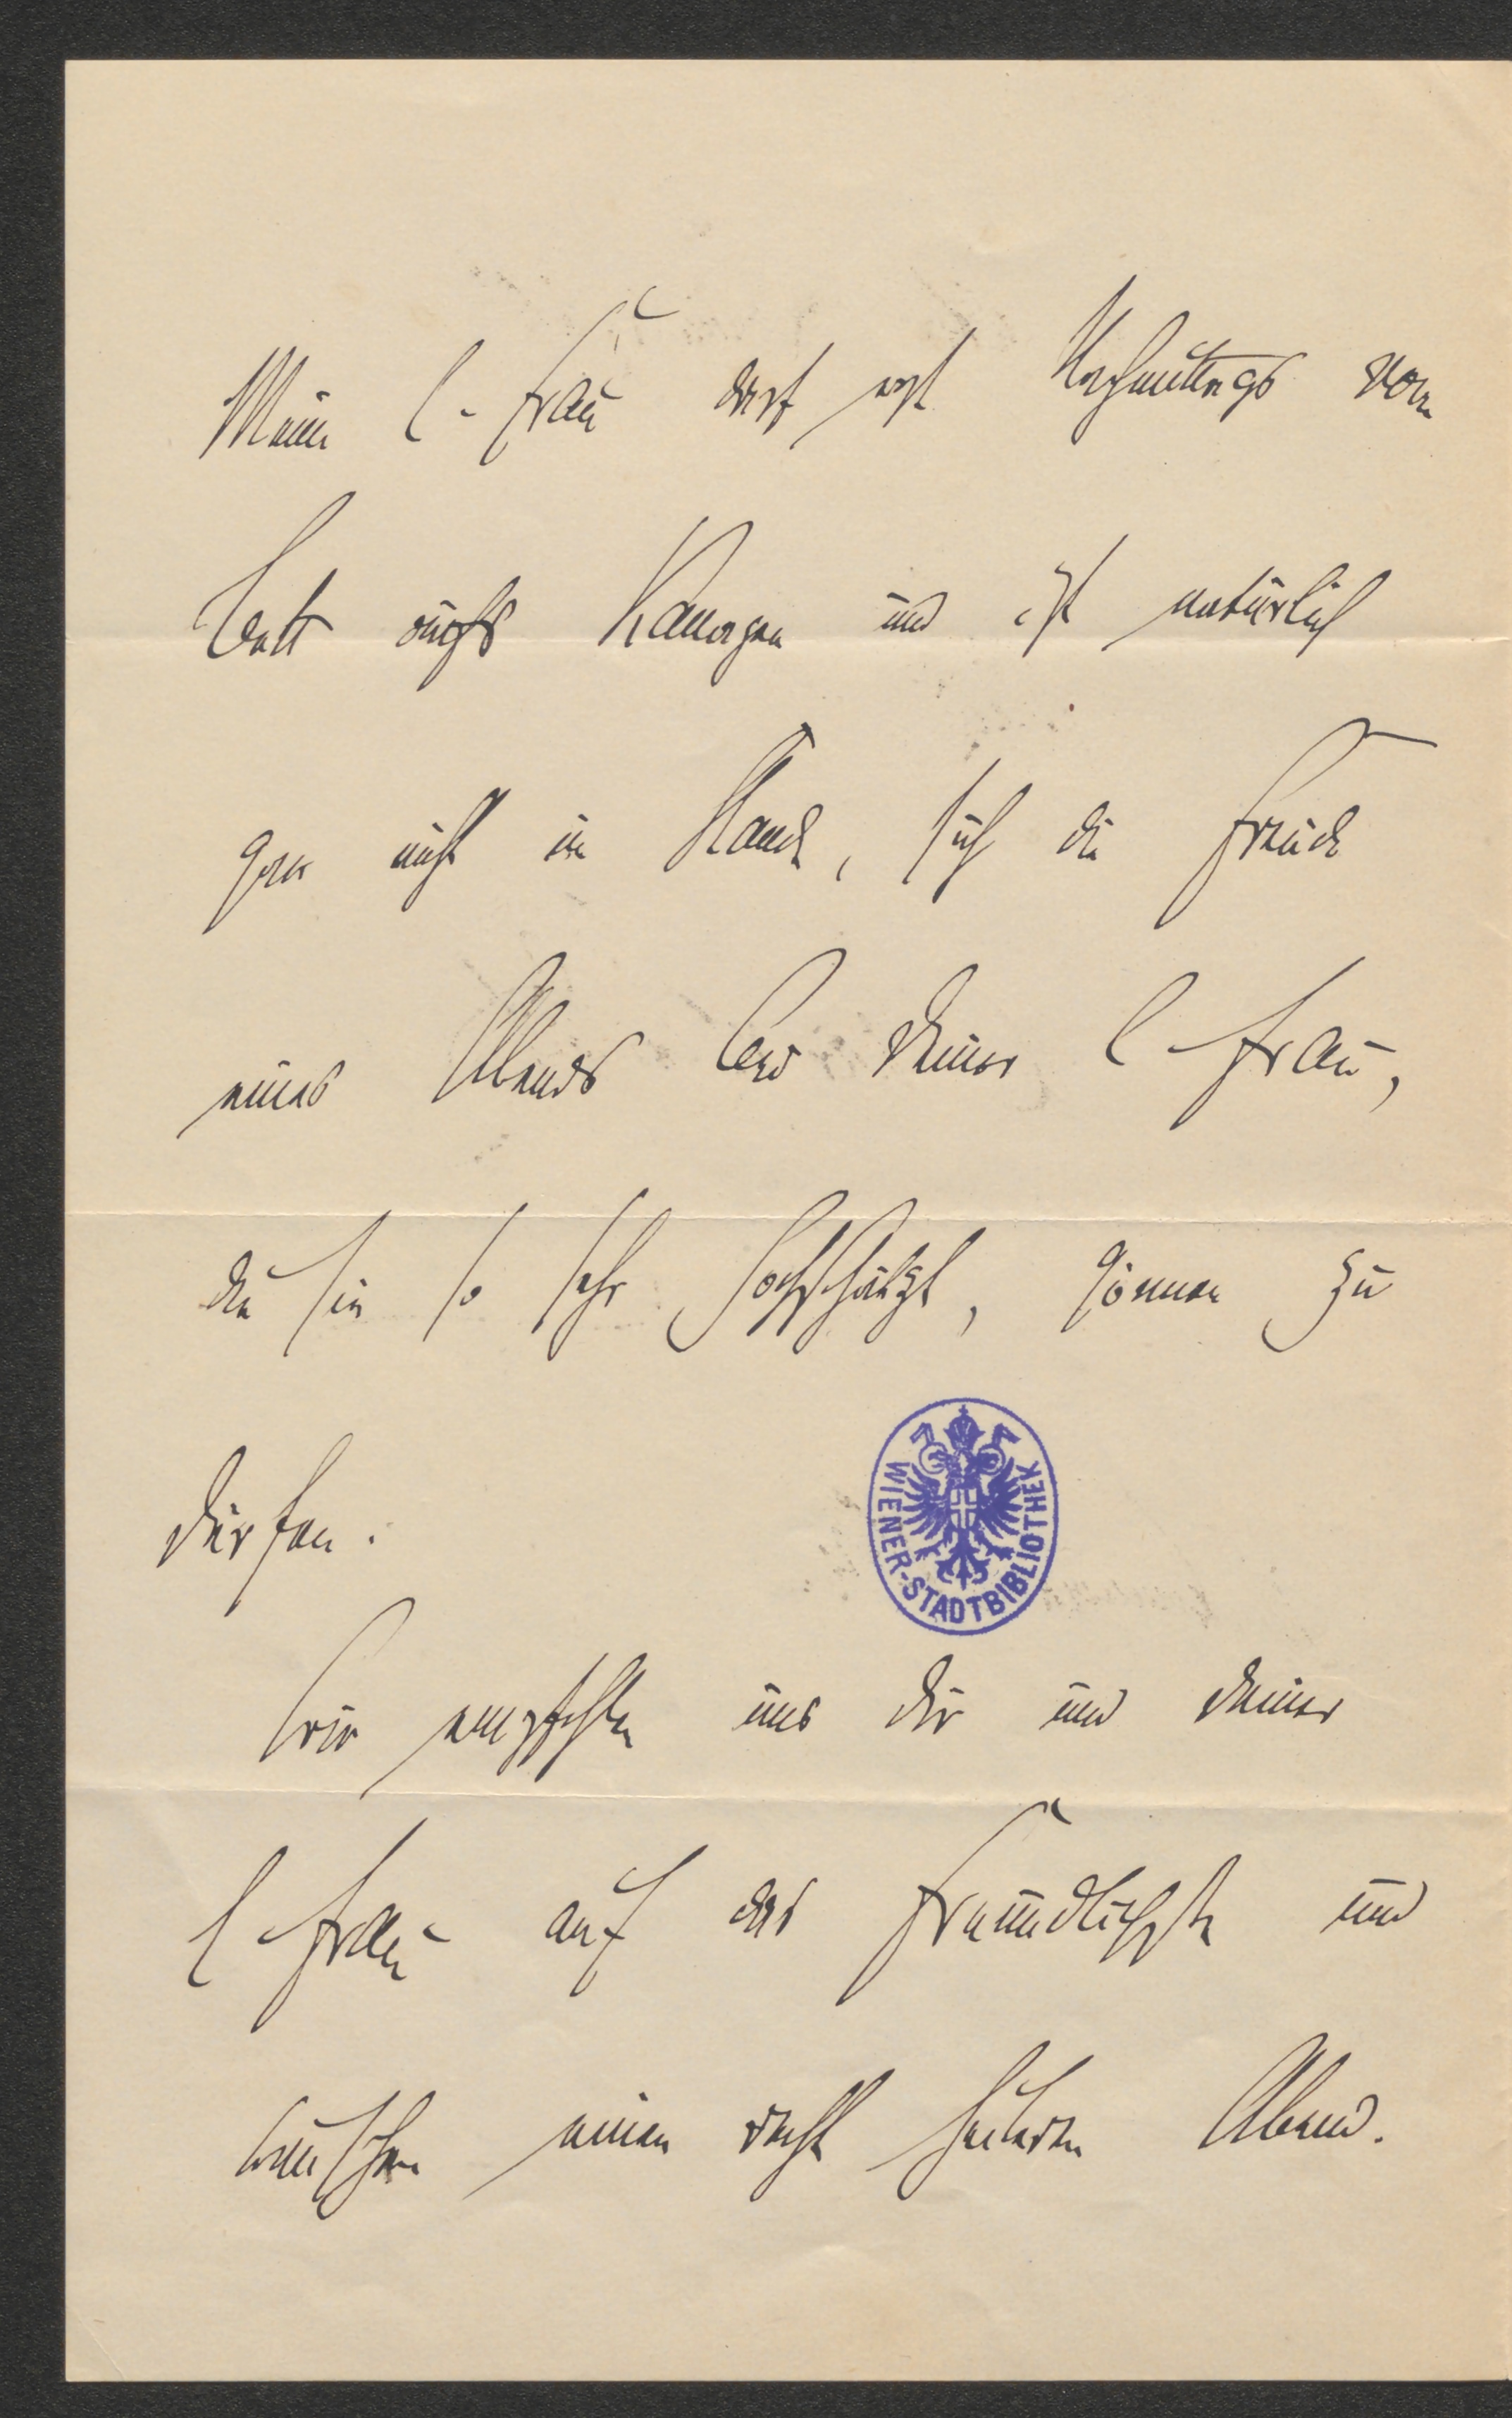 Meine l. Frau darf erst Nachmittags vom
Bett aufs Kanapee und ist natürlich
gar nicht im Stand, sich die Freude
eines Abends bei Deiner l. Frau,
die sie so sehr hochschätzt, gönnen zu
dürfen.
WIENER-STADTBIBLIOTHEK
Wir empfehlen uns Dir und Deiner
l. Frau auf das freundlichste und
wünschen einen recht heiteren Abend.